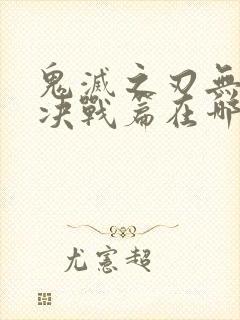 鬼滅之刃無
决戰篇在哪
尤憲超